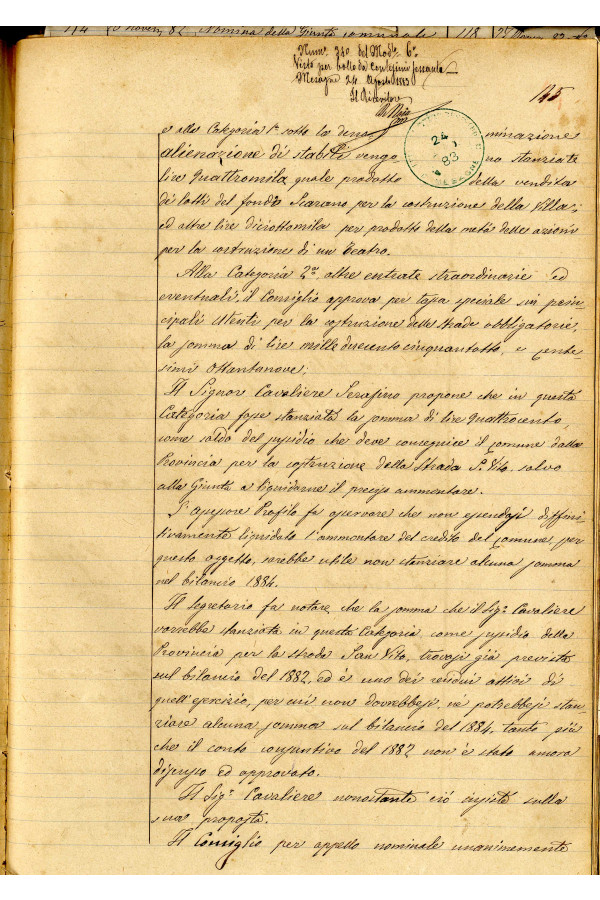 Nomina della Giunta comunale 118
Num.º 340 del Mod.º 6º
Visto per bollo da centesimi sessanta
Mesagne 24 Agosto 1883
Il Ricevitore
145
24
83
MESAGNE
e alla Categoria 1ª sotto la denominazione
alienazione di stabili vengono stanziate
lire quattromila quale prodotto della vendita
di lotti del fondo Scazano per la costruzione della Villa;
ed altre lire diciottomila per prodotto della metà delle azioni
per la costruzione di un Teatro.
Alla Categoria 2ª altre entrate straordinarie ed
eventuali, il Consiglio approva per tassa speciale sui prin-
cipali utenti per la costruzione delle strade obbligatorie,
la somma di lire mille duecento cinquantotto, e cente-
simi Ottantanove;
Il Signor Cavaliere Serafino propone che in questa
Categoria fosse stanziata la somma di lire quattrocento,
come saldo del sussidio che deve conseguire il comune dalla
Provincia per la costruzione della strada S. Vito, salvo
alla Giunta a liquidarne il preciso ammontare.
L'assessore Profilo fa osservare che non essendosi diffini-
tivamente liquidato l'ammontare del credito del comune per
questo oggetto, sarebbe utile non stanziare alcuna somma
nel bilancio 1884.
Il segretario fa notare che la somma che il Sig.r Cavaliere
vorrebbe stanziata in questa Categoria, come sussidio della
Provincia per la strada San Vito, trovasi già prevista
sul bilancio del 1882, ed è uno dei residui attivi di
quell'esercizio, per cui non dovrebbesi, né potrebbesi stan-
ziare alcuna somma sul bilancio del 1884, tanto più
che il conto consuntivo del 1882 non è stato ancora
discusso ed approvato.
Il Sig.r Cavaliere nonostante ciò insiste sulla
sua proposta.
Il Consiglio per appello nominale unanimemente